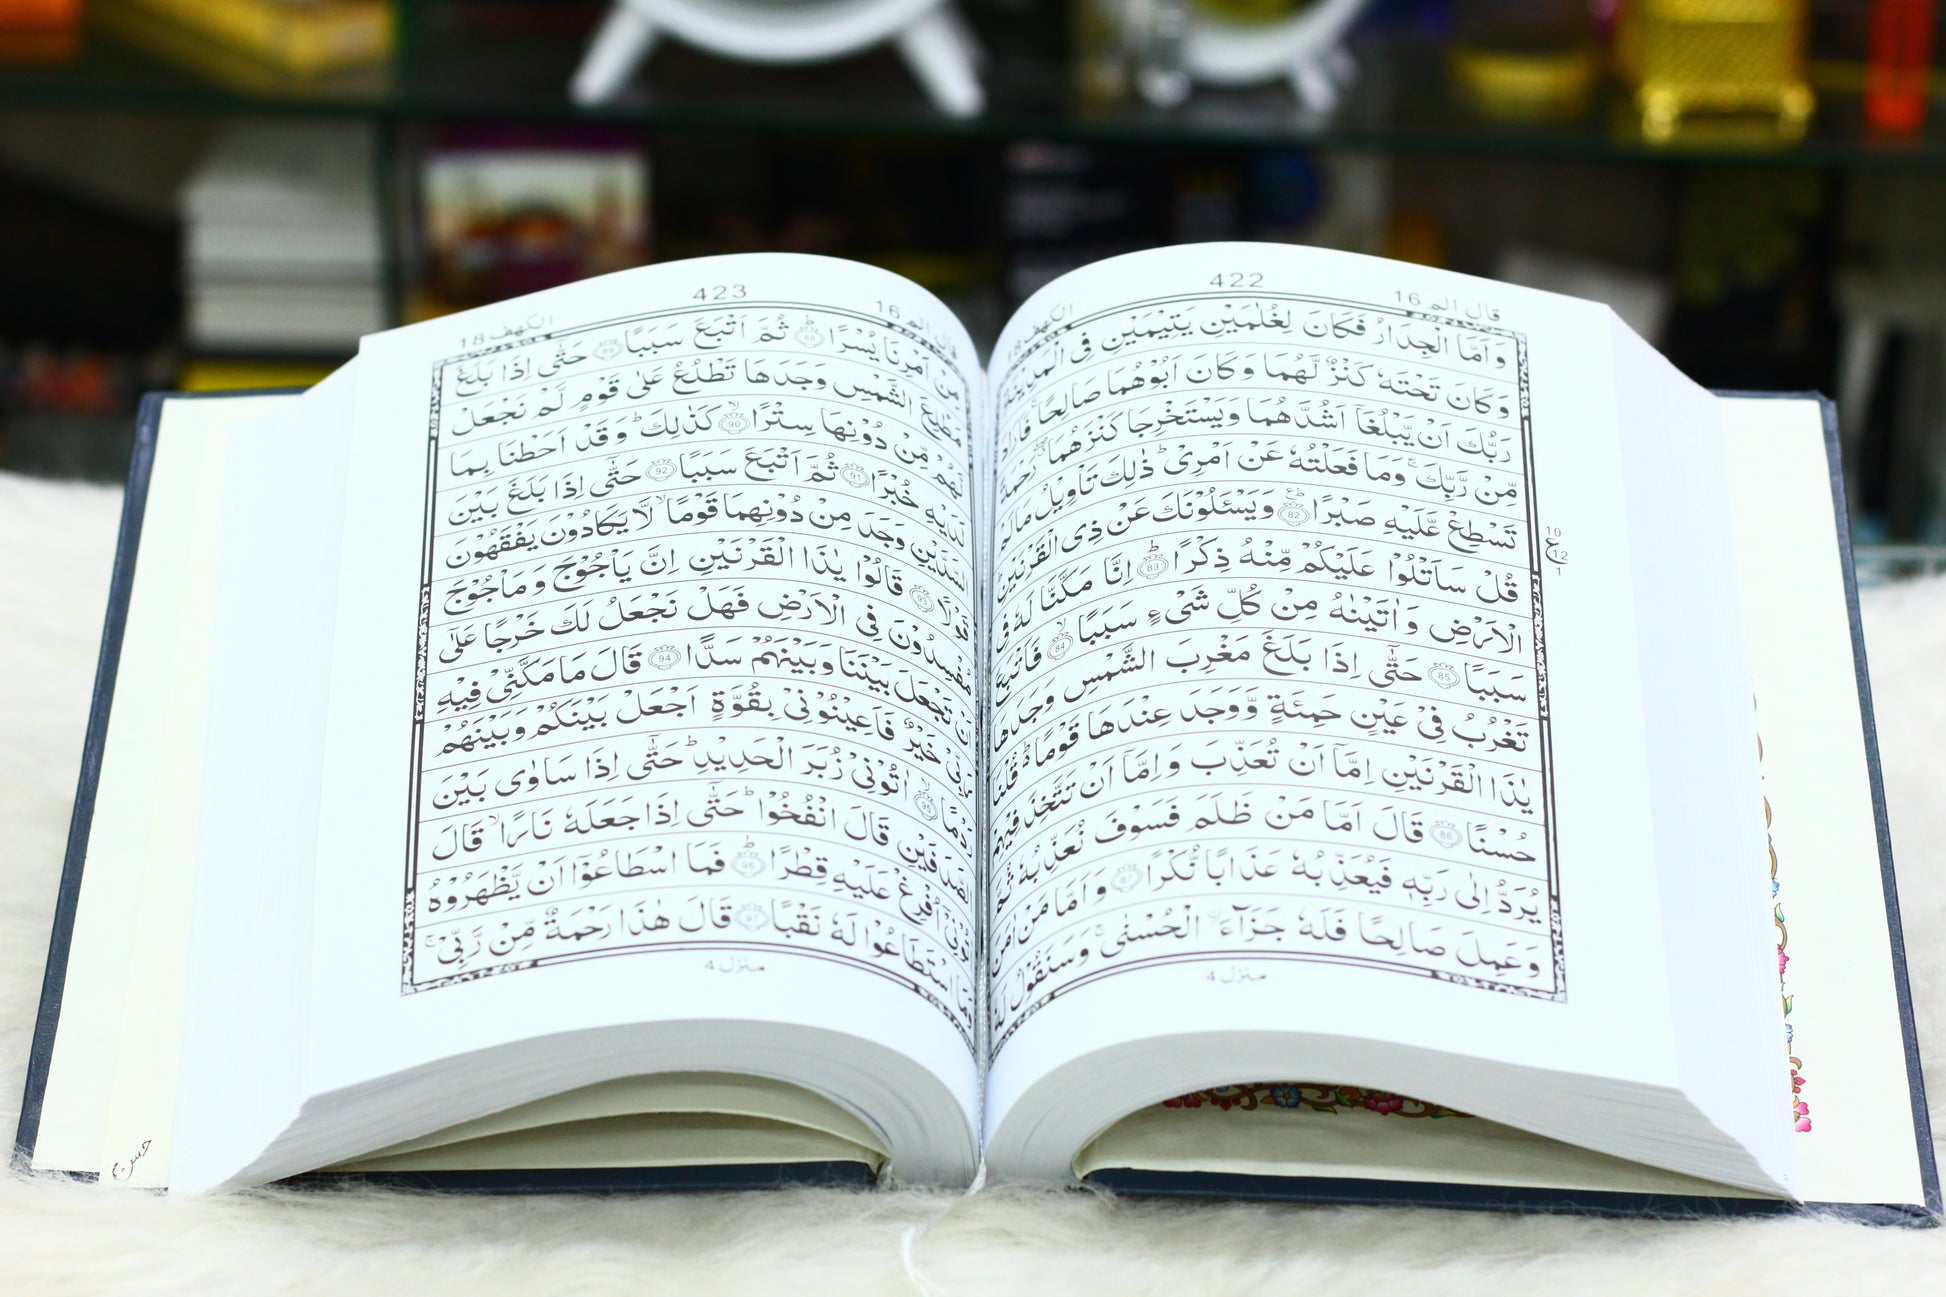 قال الم 16
422
الكهف 18
وَاَمَّا الْجِدَارُ فَكَانَ لِغُلٰمَيْنِ يَتِيْمَيْنِ فِى الْمَدِيْنَةِ
وَكَانَ تَحْتَهٗ كَنْزٌ لَّهُمَا وَكَانَ اَبُوْهُمَا صَالِحًا ۚ فَاَرَادَ
رَبُّكَ اَنْ يَّبْلُغَاۤ اَشُدَّهُمَا وَيَسْتَخْرِجَا كَنْزَهُمَا ۖ رَحْمَةً
مِّنْ رَّبِّكَ ۚ وَمَا فَعَلْتُهٗ عَنْ اَمْرِىْ ؕ ذٰلِكَ تَاْوِيْلُ مَا لَمْ
تَسْطِعْ عَّلَيْهِ صَبْرًا ؕ 82 وَيَسْـَٔلُوْنَكَ عَنْ ذِى الْقَرْنَيْنِ ؕ
قُلْ سَاَتْلُوْا عَلَيْكُمْ مِّنْهُ ذِكْرًا ؕ 83 اِنَّا مَكَّنَّا لَهٗ فِى
الْاَرْضِ وَاٰتَيْنٰهُ مِنْ كُلِّ شَىْءٍ سَبَبًا ۙ 84 فَاَتْبَعَ
سَبَبًا 85 حَتّٰٓى اِذَا بَلَغَ مَغْرِبَ الشَّمْسِ وَجَدَهَا
تَغْرُبُ فِىْ عَيْنٍ حَمِئَةٍ وَّوَجَدَ عِنْدَهَا قَوْمًا ؕ قُلْنَا
يٰذَا الْقَرْنَيْنِ اِمَّاۤ اَنْ تُعَذِّبَ وَاِمَّاۤ اَنْ تَتَّخِذَ فِيْهِمْ
حُسْنًا 86 قَالَ اَمَّا مَنْ ظَلَمَ فَسَوْفَ نُعَذِّبُهٗ ثُمَّ
يُرَدُّ اِلٰى رَبِّهٖ فَيُعَذِّبُهٗ عَذَابًا نُّكْرًا 87 وَاَمَّا مَنْ اٰمَنَ
وَعَمِلَ صَالِحًا فَلَهٗ جَزَآءَ ۨالْحُسْنٰى ۚ وَسَنَقُوْلُ لَهٗ
منزل 4
10
ع 12
1
قال الم 16
423
الكهف 18
مِنْ اَمْرِنَا يُسْرًا ؕ 88 ثُمَّ اَتْبَعَ سَبَبًا 89 حَتّٰٓى اِذَا بَلَغَ
مَطْلِعَ الشَّمْسِ وَجَدَهَا تَطْلُعُ عَلٰى قَوْمٍ لَّمْ نَجْعَلْ
لَّهُمْ مِّنْ دُوْنِهَا سِتْرًا ۙ 90 كَذٰلِكَ ؕ وَقَدْ اَحَطْنَا بِمَا
لَدَيْهِ خُبْرًا 91 ثُمَّ اَتْبَعَ سَبَبًا 92 حَتّٰٓى اِذَا بَلَغَ بَيْنَ
السَّدَّيْنِ وَجَدَ مِنْ دُوْنِهِمَا قَوْمًا ۙ لَّا يَكَادُوْنَ يَفْقَهُوْنَ
قَوْلًا 93 قَالُوْا يٰذَا الْقَرْنَيْنِ اِنَّ يَاْجُوْجَ وَمَاْجُوْجَ
مُفْسِدُوْنَ فِى الْاَرْضِ فَهَلْ نَجْعَلُ لَكَ خَرْجًا عَلٰٓى
اَنْ تَجْعَلَ بَيْنَنَا وَبَيْنَهُمْ سَدًّا 94 قَالَ مَا مَكَّنِّىْ فِيْهِ
رَبِّىْ خَيْرٌ فَاَعِيْنُوْنِىْ بِقُوَّةٍ اَجْعَلْ بَيْنَكُمْ وَبَيْنَهُمْ
رَدْمًا ۙ 95 اٰتُوْنِىْ زُبَرَ الْحَدِيْدِ ؕ حَتّٰٓى اِذَا سَاوٰى بَيْنَ
الصَّدَفَيْنِ قَالَ انْفُخُوْا ؕ حَتّٰٓى اِذَا جَعَلَهٗ نَارًا ۙ قَالَ
اٰتُوْنِىْۤ اُفْرِغْ عَلَيْهِ قِطْرًا ؕ 96 فَمَا اسْطَاعُوْۤا اَنْ يَّظْهَرُوْهُ
وَمَا اسْتَطَاعُوْا لَهٗ نَقْبًا 97 قَالَ هٰذَا رَحْمَةٌ مِّنْ رَّبِّىْ ۚ
منزل 4